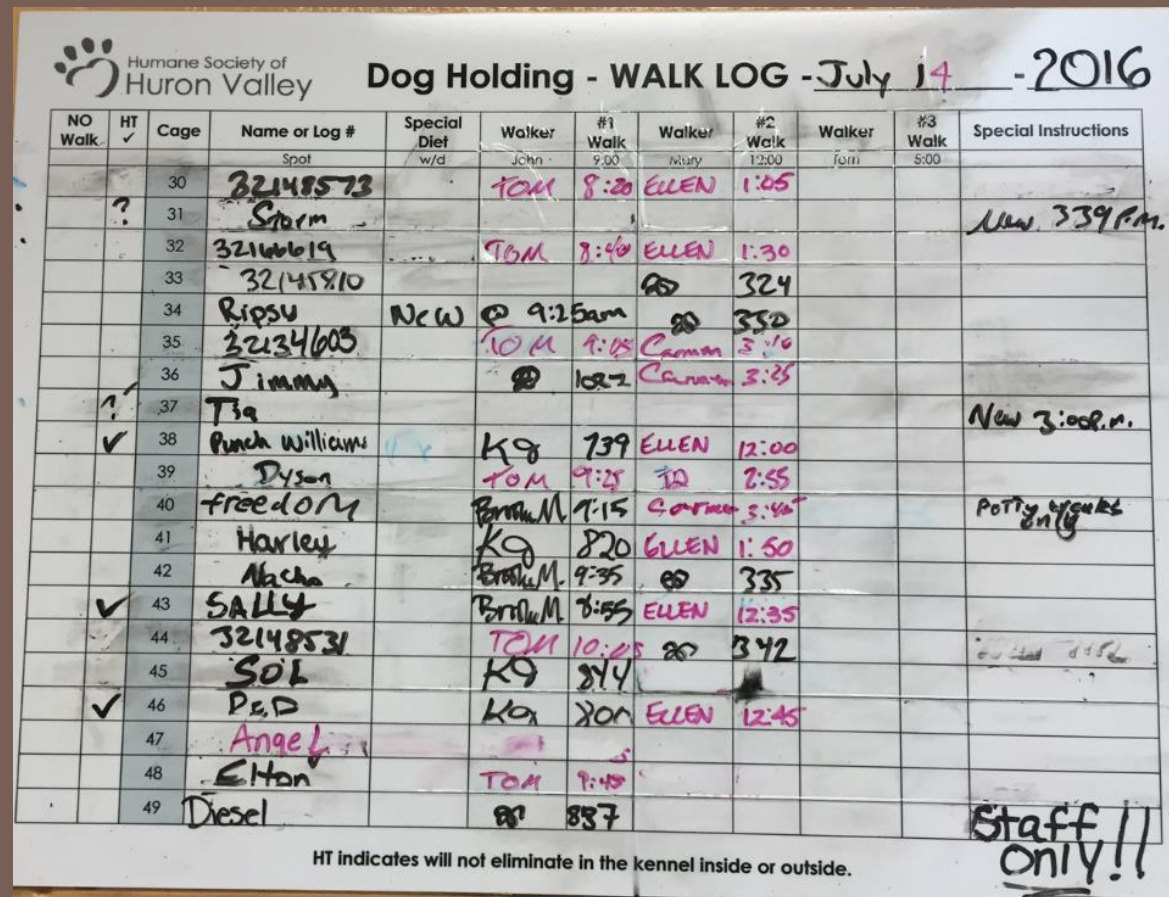 Humane Society of
Huron Valley
Dog Holding - WALK LOG - July 14 - 2016
NO Walk HT ✓ Cage Name or Log # Special Diet Walker #1 Walk Walker #2 Walk Walker #3 Walk Special Instructions
Spot w/d John 9:00 Mary 12:00 Tom 5:00
30 32148573 TOM 8:20 ELLEN 1:05
? 31 Storm New 339 P.M.
32 32166619 TOM 8:40 ELLEN 1:30
33 32145810 324
34 Ripsu New @ 9:25am 350
35 32134603 TOM 9:05 Carmen 3:10
36 Jimmy Carmen 3:25
? 37 Tia New 3:00P.m.
✓ 38 Punch Williams Kg 739 ELLEN 12:00
39 Dyson TOM 9:25 2:55
40 freedom Brooke M 9:15 Carmen Potty walks only
41 Harley Kg 820 ELLEN 1:50
42 Nacho Brooke M. 9:35 335
✓ 43 SALLY Brooke M 8:55 ELLEN 12:35
44 32148531 TOM 342
45 SOL Kg 844
✓ 46 ELLEN 12:45
47 Angel
48 Elton TOM
49 Diesel 837 Staff only!!
HT indicates will not eliminate in the kennel inside or outside.